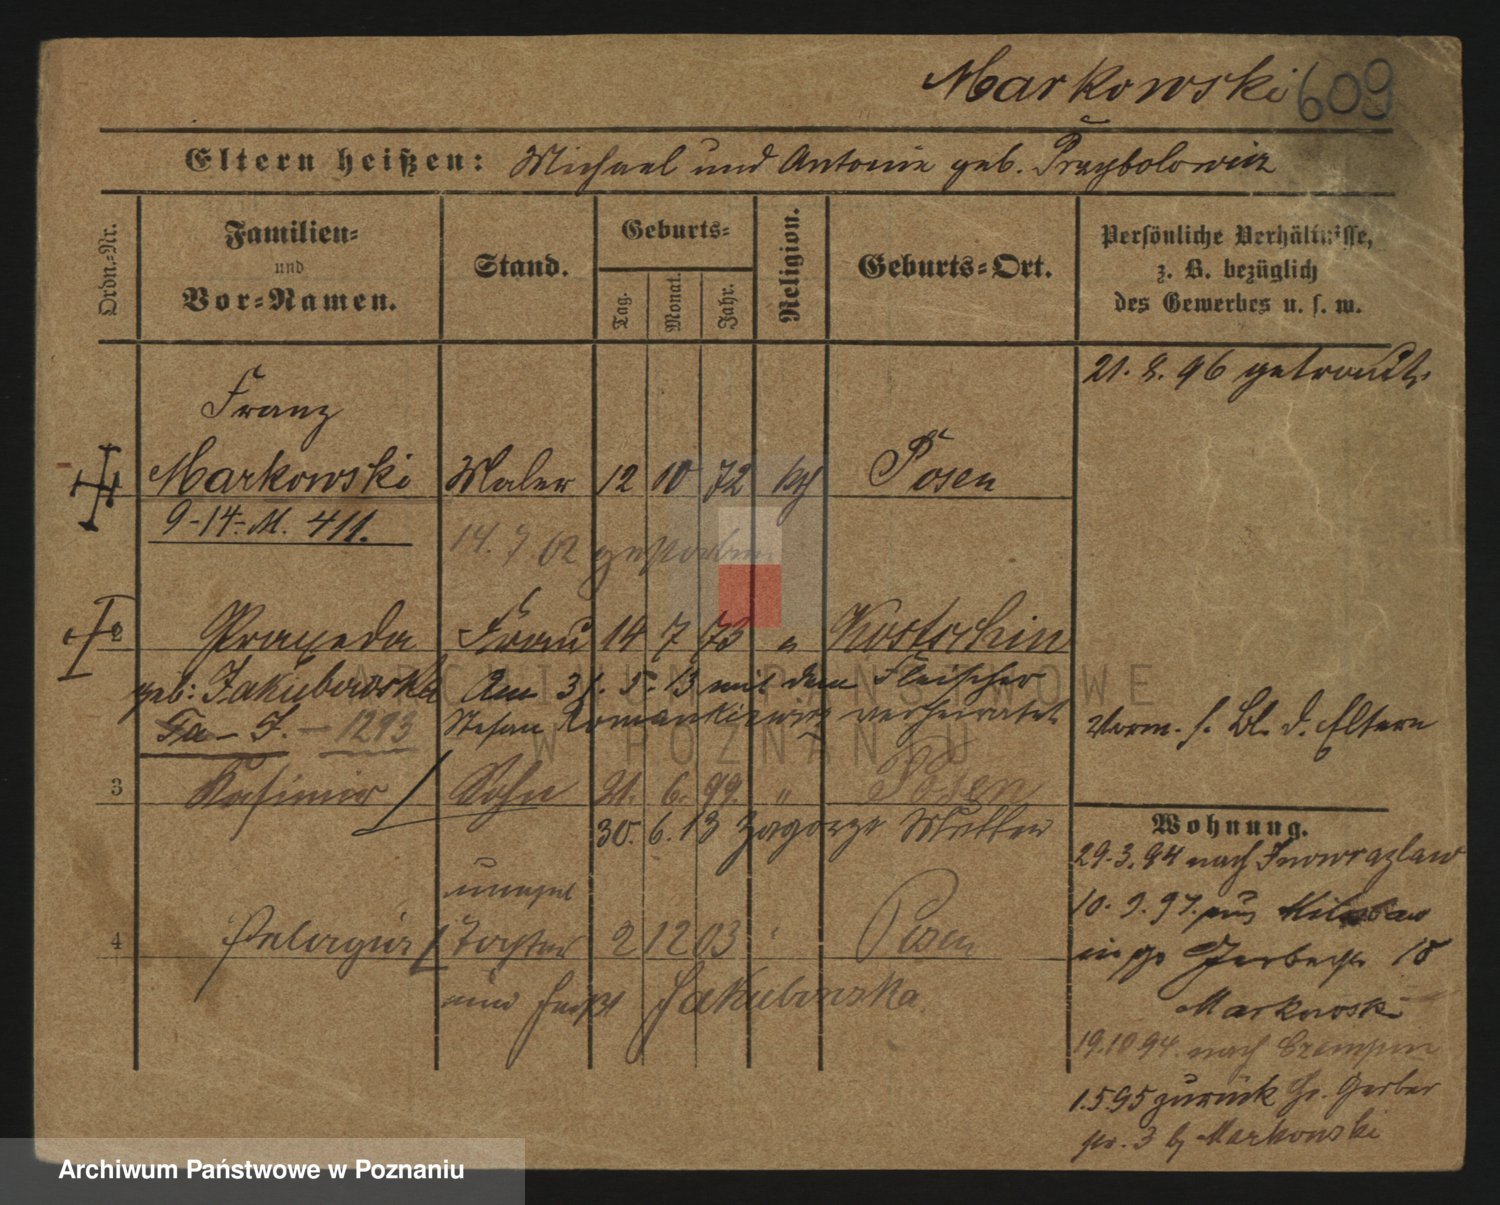 Markowski 609
Eltern heißen: Michael und Antonie geb. Przybolowicz
Ordn.-Nr.
Familien-
und
Vor-Namen.
Stand.
Geburts-
Tag.
Monat.
Jahr.
Religion.
Geburts-Ort.
Persönliche Verhältnisse,
z. B. bezüglich
des Gewerbes u. s. w.
21. 8. 96 getraut.
Franz
Markowski Maler 12 10 72 kth Posen
9-14-M. 411.
14. 7 02 gestorben
2 Praxeda Frau 14 7 73 " Kostschin
geb: Jakubowska Am 31. 5. 13 mit dem Fleischer
Fa-J. - 1293 Stefan Romankiewicz verheiratet
Vorm. s. Bl. d. Eltern
3 Kasimir Sohn 21. 6. 99. " Posen
30. 6. 13 Zagorze Mutter
unehel
4 Pelagia Tochter 2 12 03 " Posen
und heißt Jakubowska
Wohnung.
29.3.94 nach Inowrazlaw
10. 9. 97. aus
18
Markowski
19.10 94. nach Czempin
1.5.95 zurück Gr. Gerber
str. 3 bj Markowski
ARCHIWUM PAŃSTWOWE
W POZNANIU
Archiwum Państwowe w Poznaniu